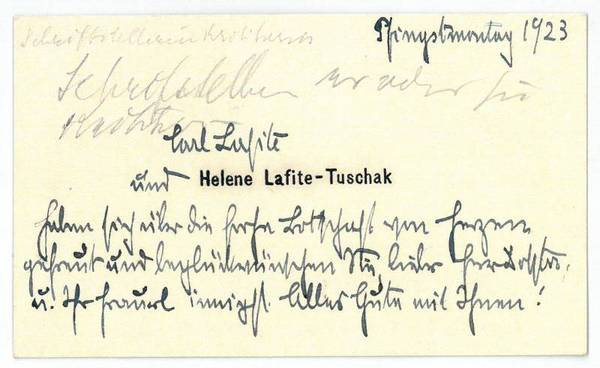 Schriftstellerin
Pfingstmontag 1923
Schriftsteller
Carl Lafite
und Helene Lafite-Tuschak
haben sich über die frohe Botschaft von Herzen
gefreut und beglückwünschen Sie, lieber Herr
u. Ihr Frauerl innigst. Alles Gute mit Ihnen!